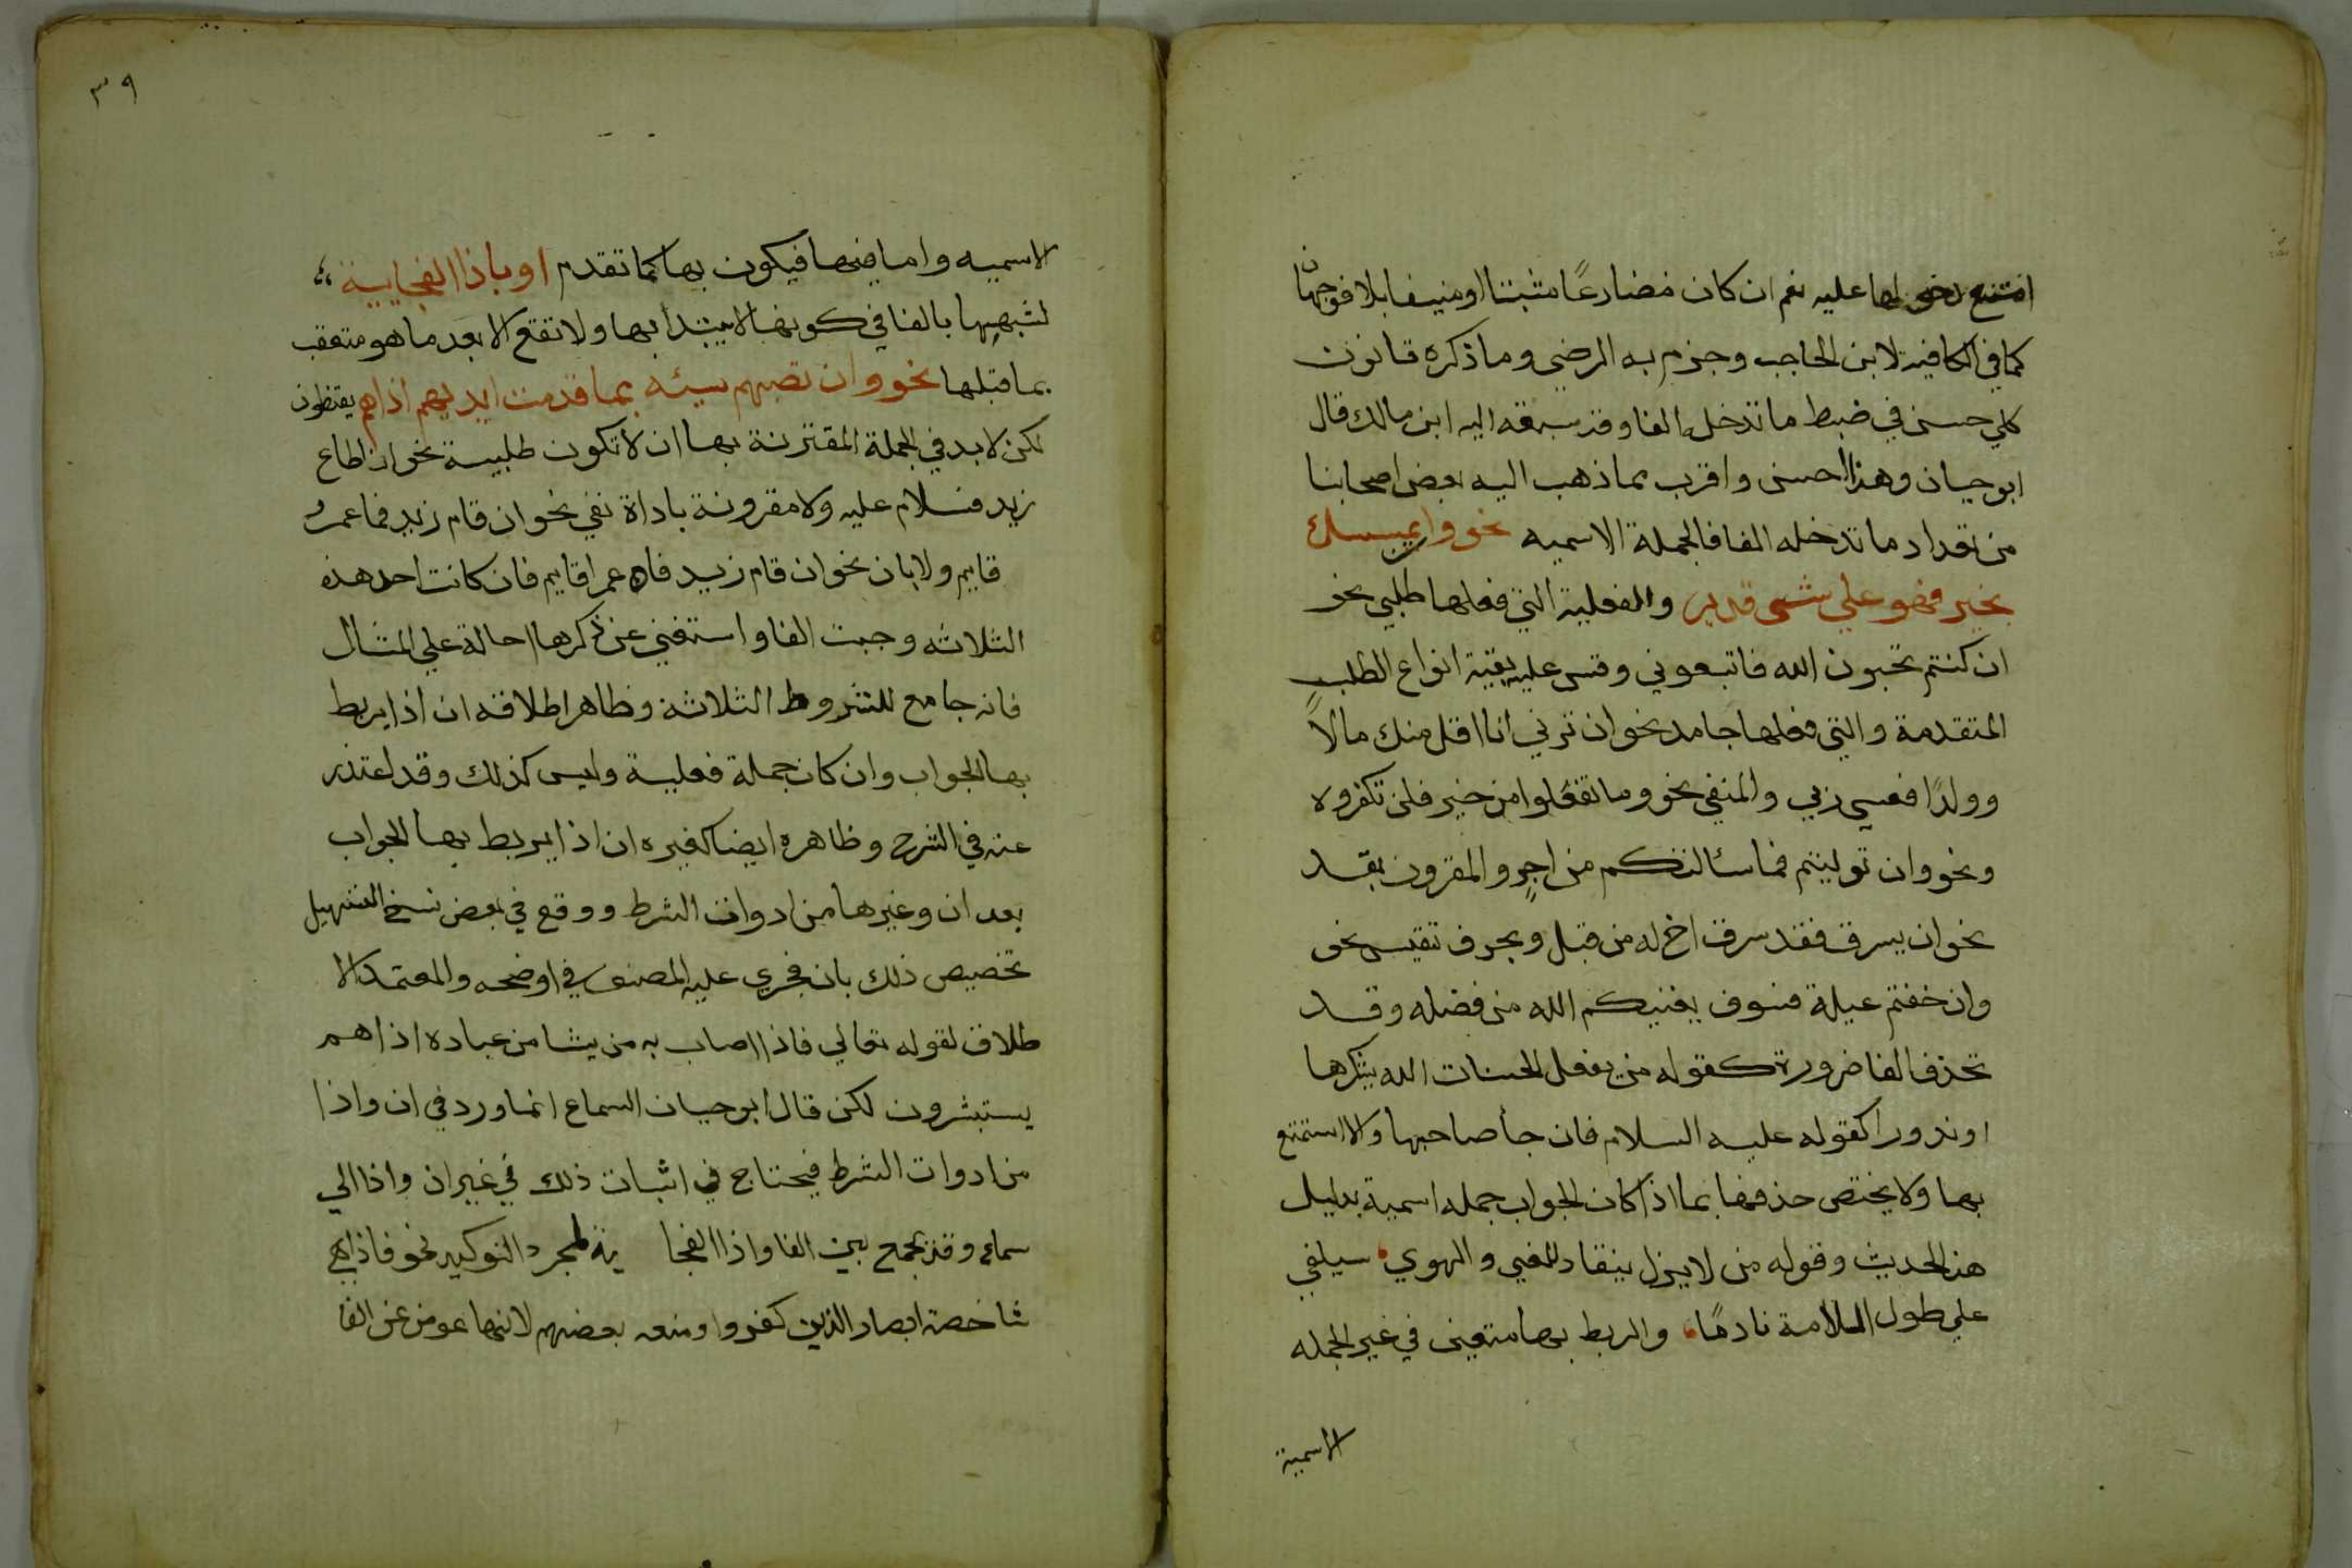 امتنع دخولها عليه نعم ان كان مضارعًا مثبتا او منيفا بلا فوجهان
كما في الكافية لابن الحاجب وجزم به الرضي وما ذكره قانون
كلي حسن في ضبط ما تدخله الفا وقد سبقه اليه ابن مالك قال
ابو حيان وهذا احسن واقرب مما ذهب اليه بعض اصحابنا
من تعداد ما تدخله الفا فالجملة الاسميه نحو وان يمسسك
بخير فهو علي شى قدير والفعلية التي فعلها طلبي نحو
ان كنتم تحبون الله فاتبعوني وقس عليه بقية انواع الطلب
المتقدمة والتي فعلها جامد نحو ان ترني انا اقل منك مالاً
وولدًا فعسي ربي والمنفي نحو وما تفعلوا من خير فلن تكفروه
ونحو وان توليتم فما سئالتكم من اجرٍ والمقرون بقد
نحو ان يسرق فقد سرق اخ له من قبل وبحرف تنفيس نحو
وان خفتم عيلة فسوف يغنيكم الله من فضله وقد
تحذف الفا ضرورة كقوله من يفعل الحسنات الله يشكرها
او ندورا كقوله عليه السلام فان جأ صاحبها والا استمتع
بها ولا يختص حذفها بما اذا كان الجواب جمله اسمية بدليل
هذا الحديث وقوله من لا يزل ينقاد للغي والهوي سيلفي
علي طول السلامة نادمًا والربط بها متعين في غير الجمله
الاسمية
٣٩
الاسميه واما فيها فيكون بها كما تقدم او باذا الفجايية
لشبهها بالفا في كونها لا يبتدا بها ولا تقع الا بعد ما هو متعقب
بما قبلها نحو وان تصبهم سيئه بما قدمت ايديهم اذا هم يقنطون
لكن لا بد في الجملة المقترنة بها ان لا تكون طلبية نحو ان اطاع
زيد فسلام عليه ولا مقرونة باداة نفي نحو ان قام زيد فما عمرو
قايم ولا بان نحو ان قام زيد فان عمرا قايم فان كانت احد هذه
الثلاثه وجبت الفا واستغني عن ذكرها احالة علي المثال
فانه جامع للشروط الثلاثة وظاهر اطلاقه ان اذا يربط
بها الجواب وان كان جملة فعلية وليس كذلك وقد اعتذر
عنه في الشرح وظاهره ايضا كغيره ان اذا يربط بها الجواب
بعد ان وغيرها من ادوات الشرط ووقع في بعض نسخ التسهيل
تخصيص ذلك بان فجري عليه المصنف في اوضحه والمعتمد الا
طلاق لقوله تعالي فاذا اصاب به من يشا من عباده اذا هم
يستبشرون لكن قال ابو حيان السماع انما ورد في ان واذا
من ادوات الشرط فيحتاج في اثبات ذلك في غير ان واذا الي
سماع وقد يجمع بين الفا واذا الفجا ية لمجرد التوكيد نحو فاذا هي
شاخصة ابصار الذين كفروا ومنعه بعضهم لانها عوض عن الفا